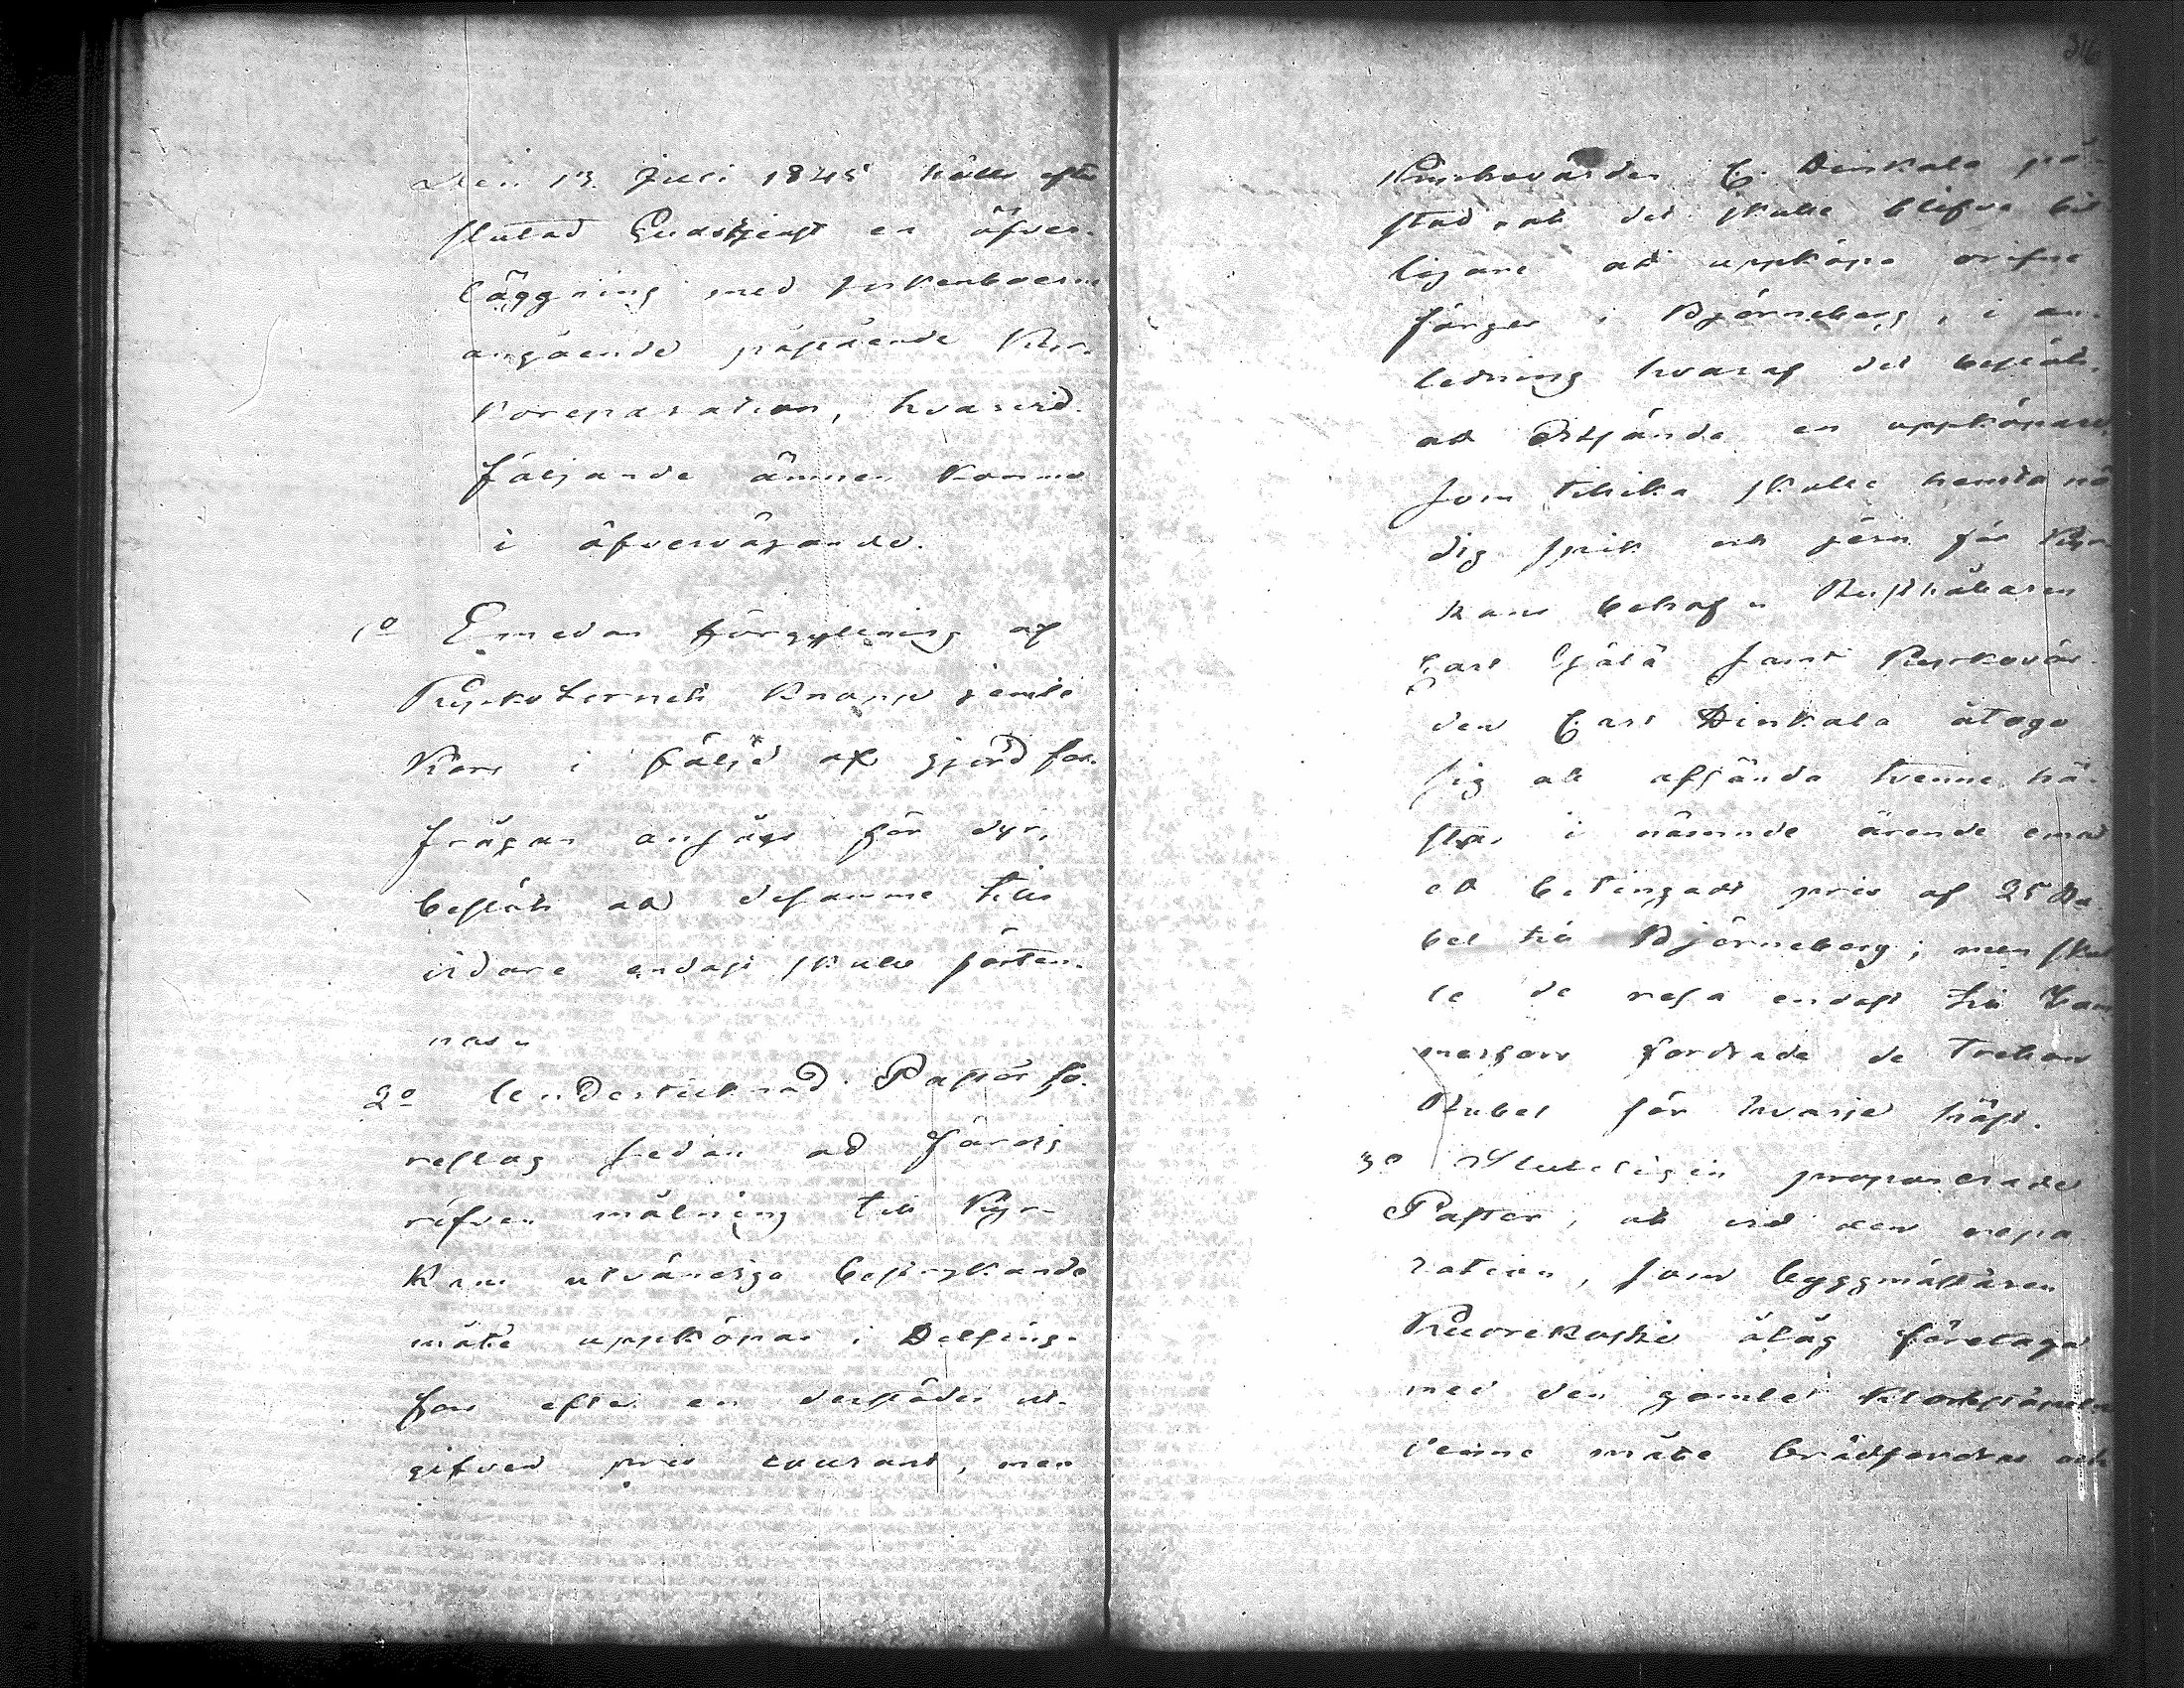 Den 13 Juli 1845 hölls efter
slutad Gudstjenst en öfver-
läggning med sockenboerne
angående påstående Kyr-
koreparation, hvarvid
följande ämnen kommo
i öfvervägande.
1o Emedan förgyllning af
Kyrkotornets Knapp jemte
Kors i följd af gjord för-
frågan ansågs för dyr,
beslöts att desamma tills
vidare endast skulle förten-
nas.
2o Undertecknad Pastor fö-
reslog sedan att färdig
rifven målning till Kyr-
kans utvändiga bestrykande
måtte uppköpas i Helsing-
fors efter en derstädes ut-
gifven pris courant, men
316
Kyrkovärden C. Heikala på-
stod, att det skulle blifva bil-
ligare att uppköpa orifne
färger i Björneborg, i an-
ledning hvaraf det beslöts,
att ditsända en uppköpare,
som tillika skulle hemta nö-
dig spik och jern för Kyr-
kans behof. Rusthållaren
Carl samt Kyrkovär-
den Carl Heikala åtogo
sig att afsända tvenne hä-
star i nämnde ärende emot
ett betingadt pris af 25 Ru-
bel till Björneborg; men skul-
le de resa endast till Tam-
merfors fordrade de Tretton
Rubel för hvarje häst.
3o Slutligen proponerade
Pastor, att vid den repa
ration, som byggmästaren
Kuorekoski ålåg företaga
med den gamla Klockstapeln
denne måtte brädfordras och